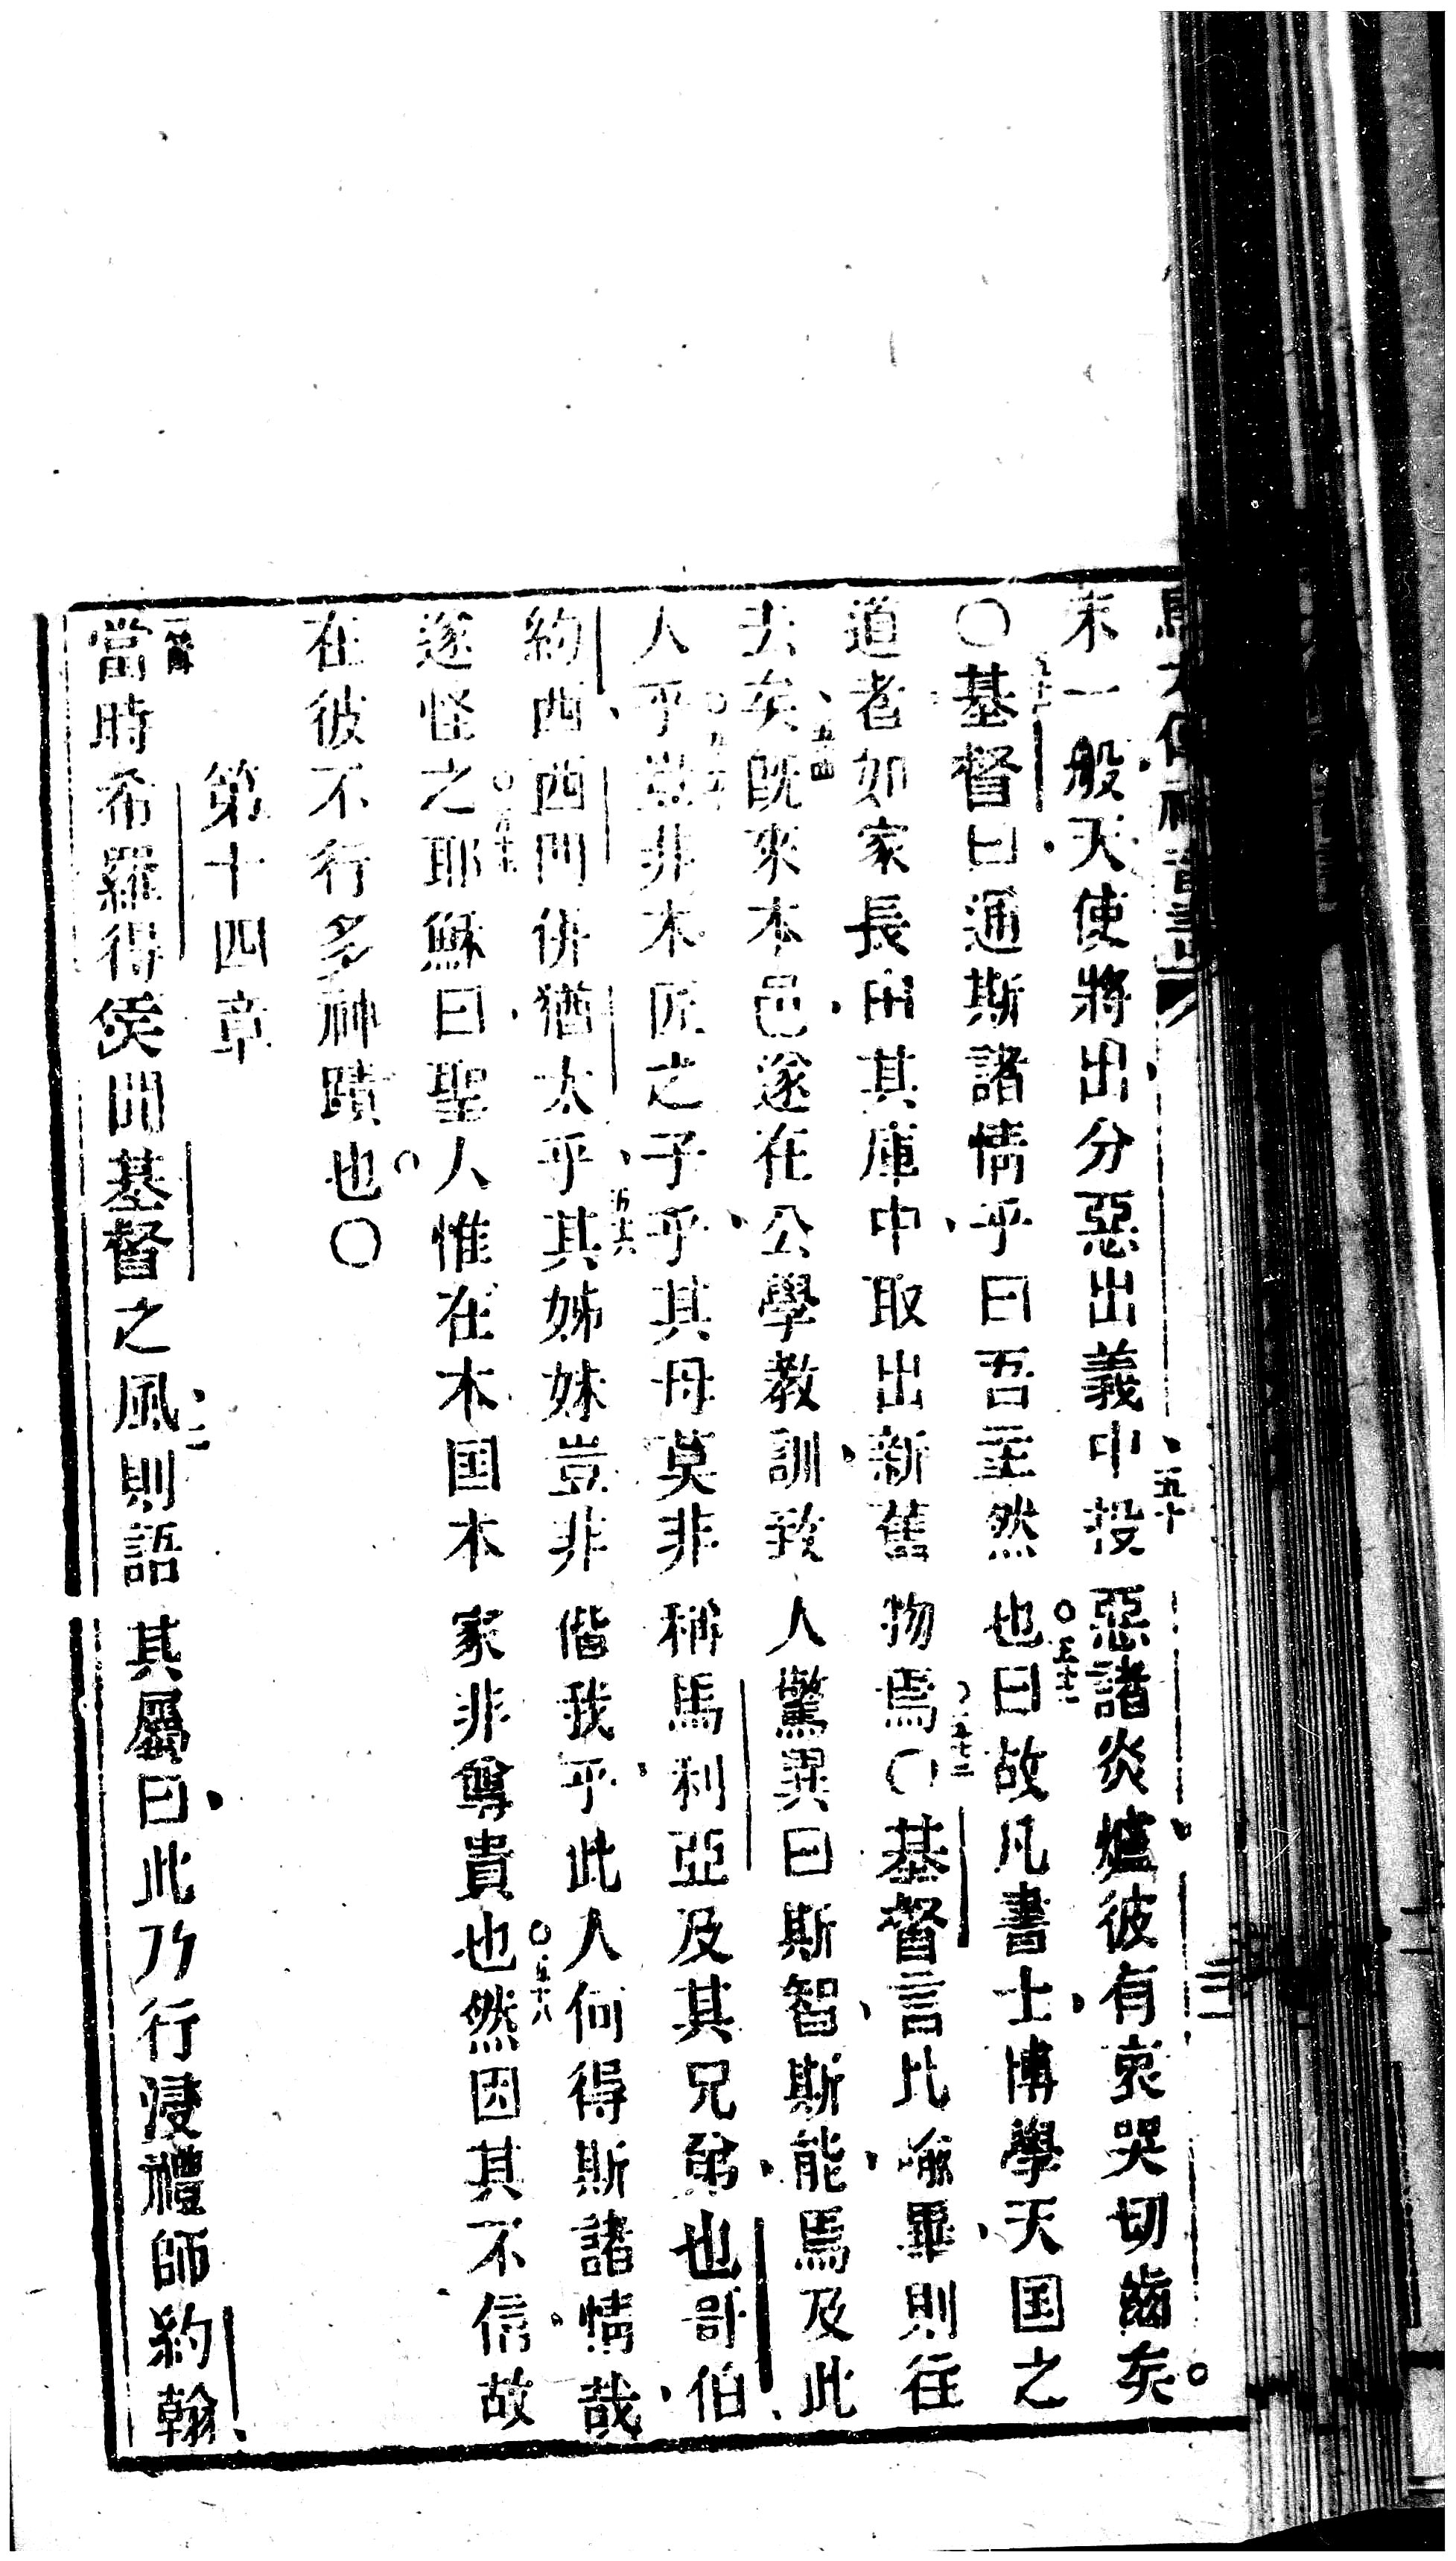 末一般天使將出分惡出義中投惡諸炎爐彼有哀哭切齒矣。
五十
〇基督曰通斯諸情乎曰吾主然也曰故凡書士博學天国之
道者如家長由其庫中取出新舊物焉〇基督言比喻畢則往
去矣既來本邑遂在公學教訓致人驚異曰斯智斯能焉及此
五四
人乎豈非木匠之子乎其母莫非稱馬利亞及其兄弟也哥伯
約西西門併猶大乎其姊妹豈非偕我乎此人何得斯諸情哉
五六
遂怪之耶穌曰聖人惟在本国本家非尊貴也然因其不信故
五十八
在彼不行多神蹟也〇
第十四章
當時希羅得侯聞基督之風則語其屬曰此乃行浸禮師約翰
二